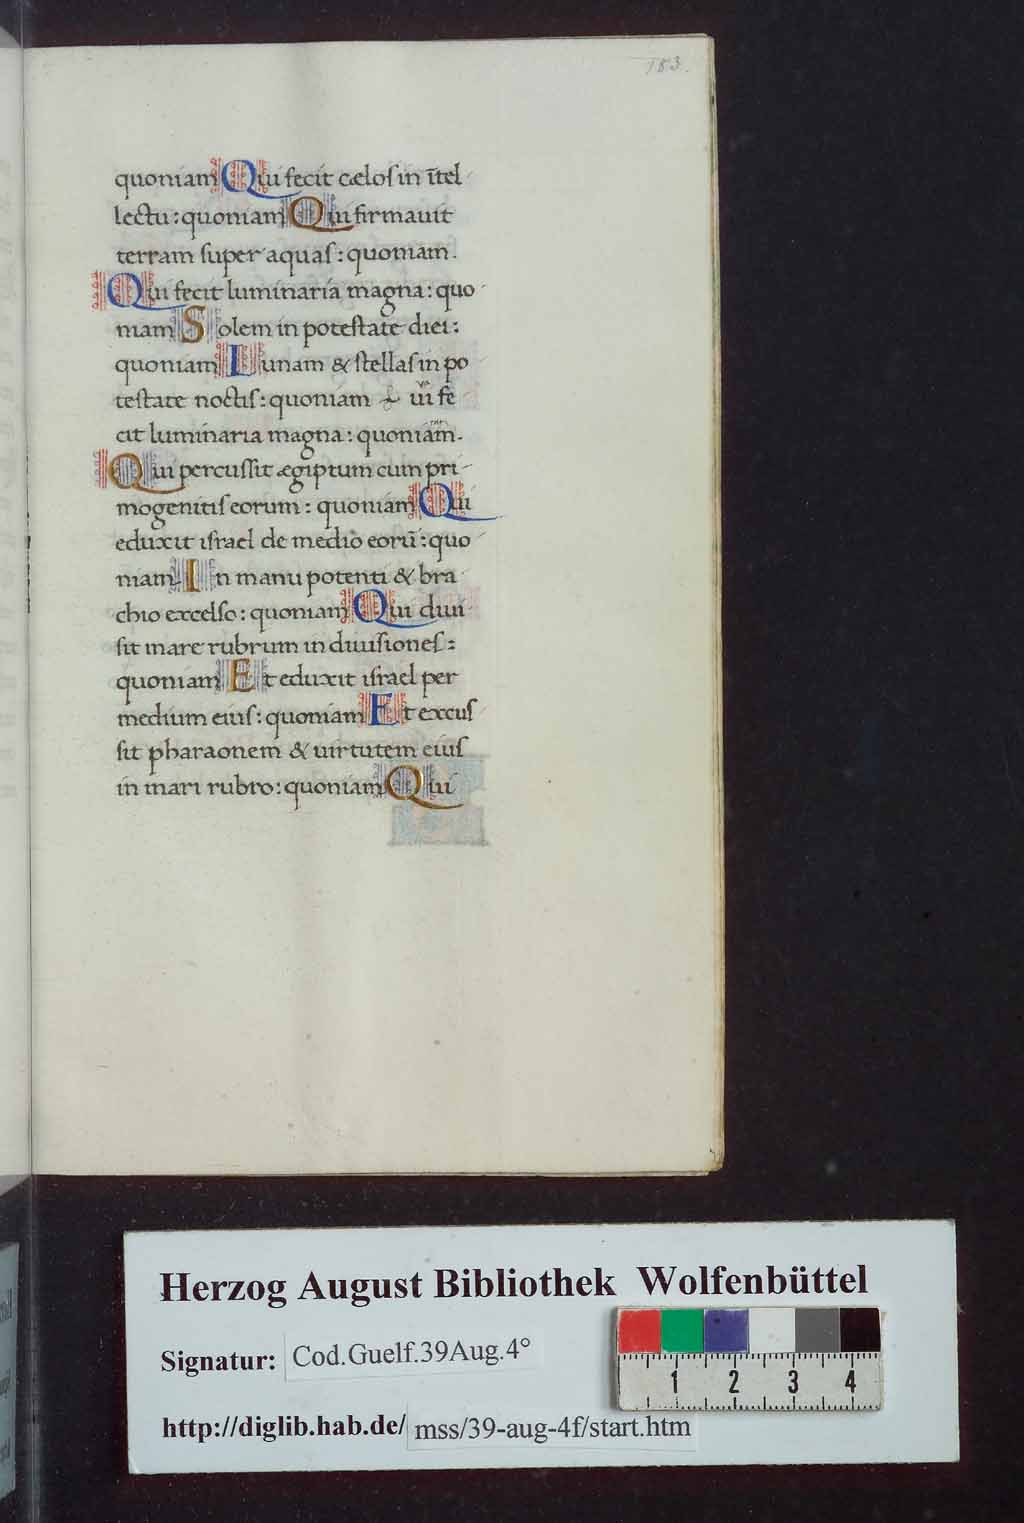 183.
quoniam Qui fecit cælos in ītel
lectu: quoniam Qui firmauit
terram super aquas: quoniam.
Qui fecit luminaria magna: quo
niam Solem in potestate diei:
quoniam Lunam & stellas in po
testate noctis: quoniam ui fe
cit luminaria magna: quoniam.
Qui percussit ægiptum cum pri
mogenitis eorum: quoniam Qui
eduxit israel de medio eorū: quo
niam In manu potenti & bra
chio excelso: quoniam Qui diui
sit mare rubrum in diuisiones:
quoniam Et eduxit israel per
medium eius: quoniam Et excus
sit pharaonem & uirtutem eius
in mari rubro: quoniam Qui
Herzog August Bibliothek Wolfenbüttel
Signatur: Cod.Guelf.39Aug.4°
http://diglib.hab.de/ mss/39-aug-4f/start.htm
1 2 3 4